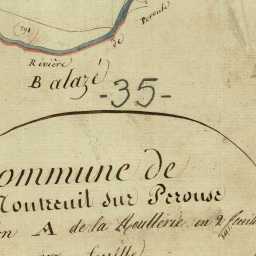 291
de Perouse
Rivière
Balazé
-35-
ommune de
Montreuil sur Perouse
on A de la Houllerie en 2 feuilles
feuille